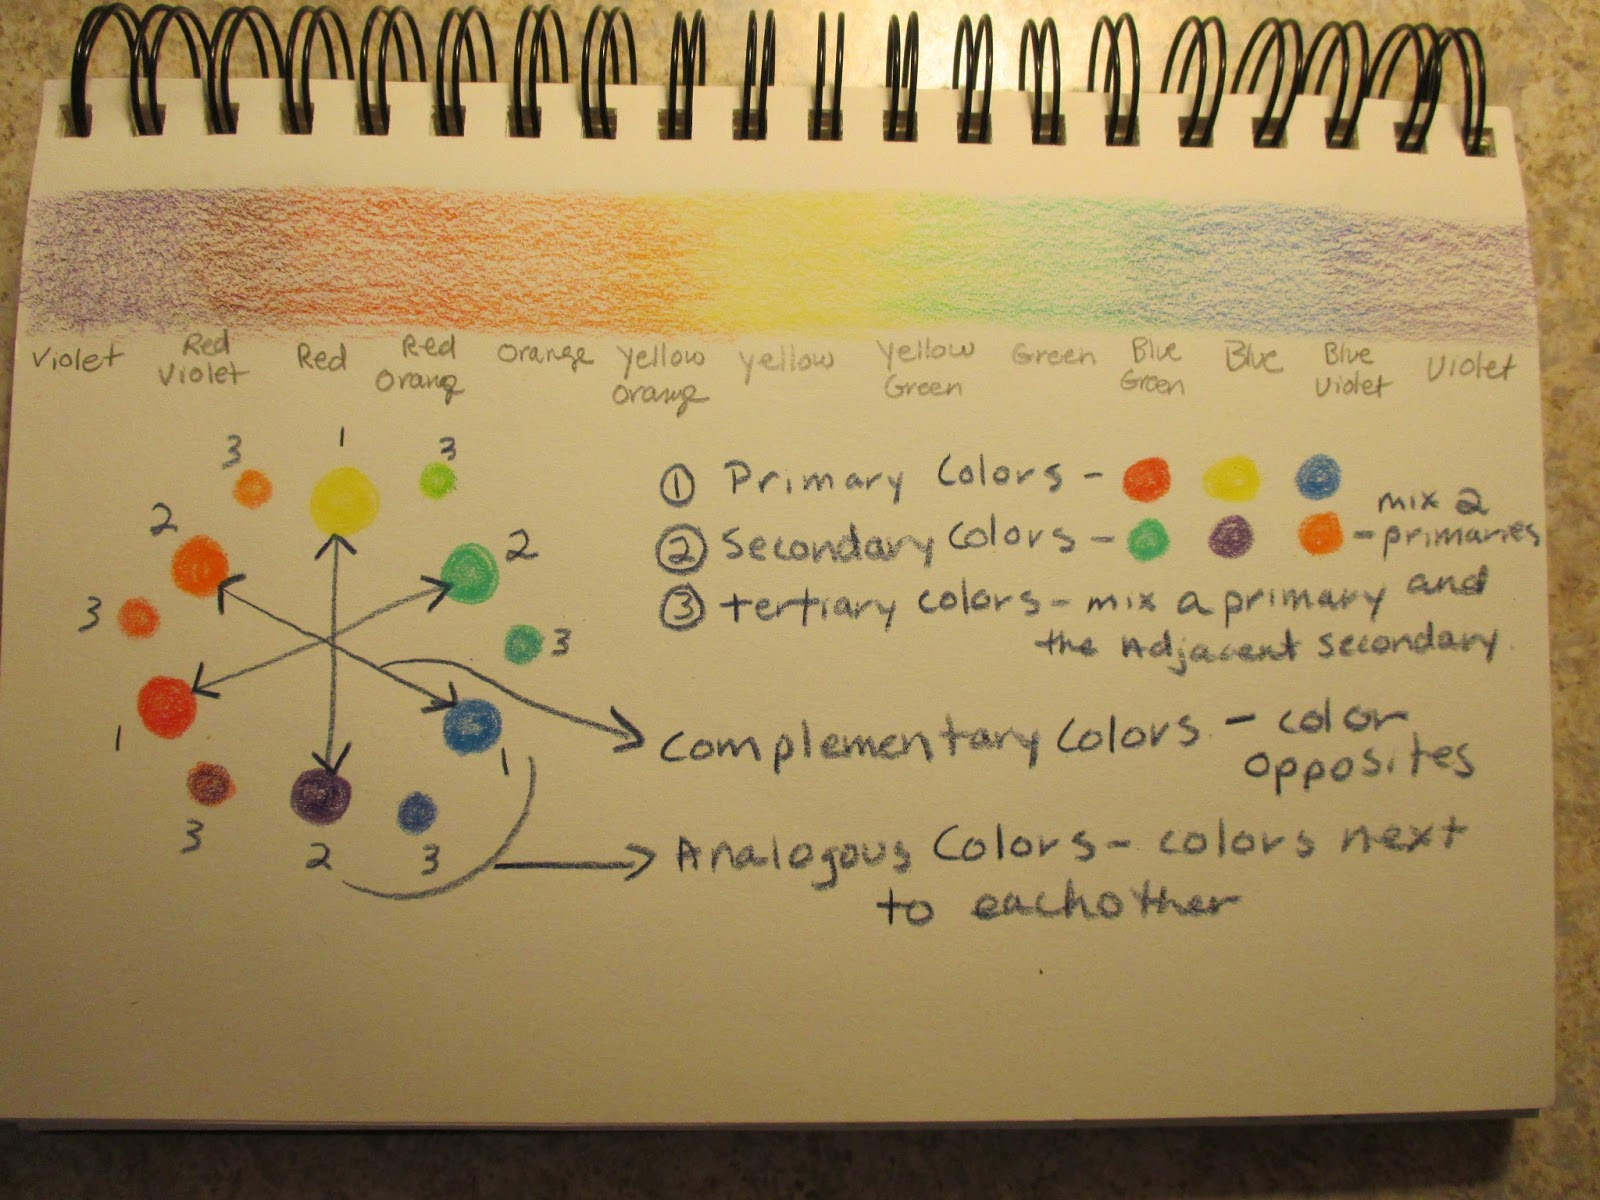 Violet
Red
Violet
Red
Red
Orang
Orange
Yellow
Orange
Yellow
Yellow
Green
Green
Blue
Green
Blue
Blue
Violet
Violet
3
1
3
2
2
3
3
1
1
3
2
3
① Primary Colors -
② Secondary Colors - - mix 2
primaries
③ tertiary colors - mix a primary and
the Adjacent secondary.
Complementary Colors - color
opposites
Analogous Colors - colors next
to eachother